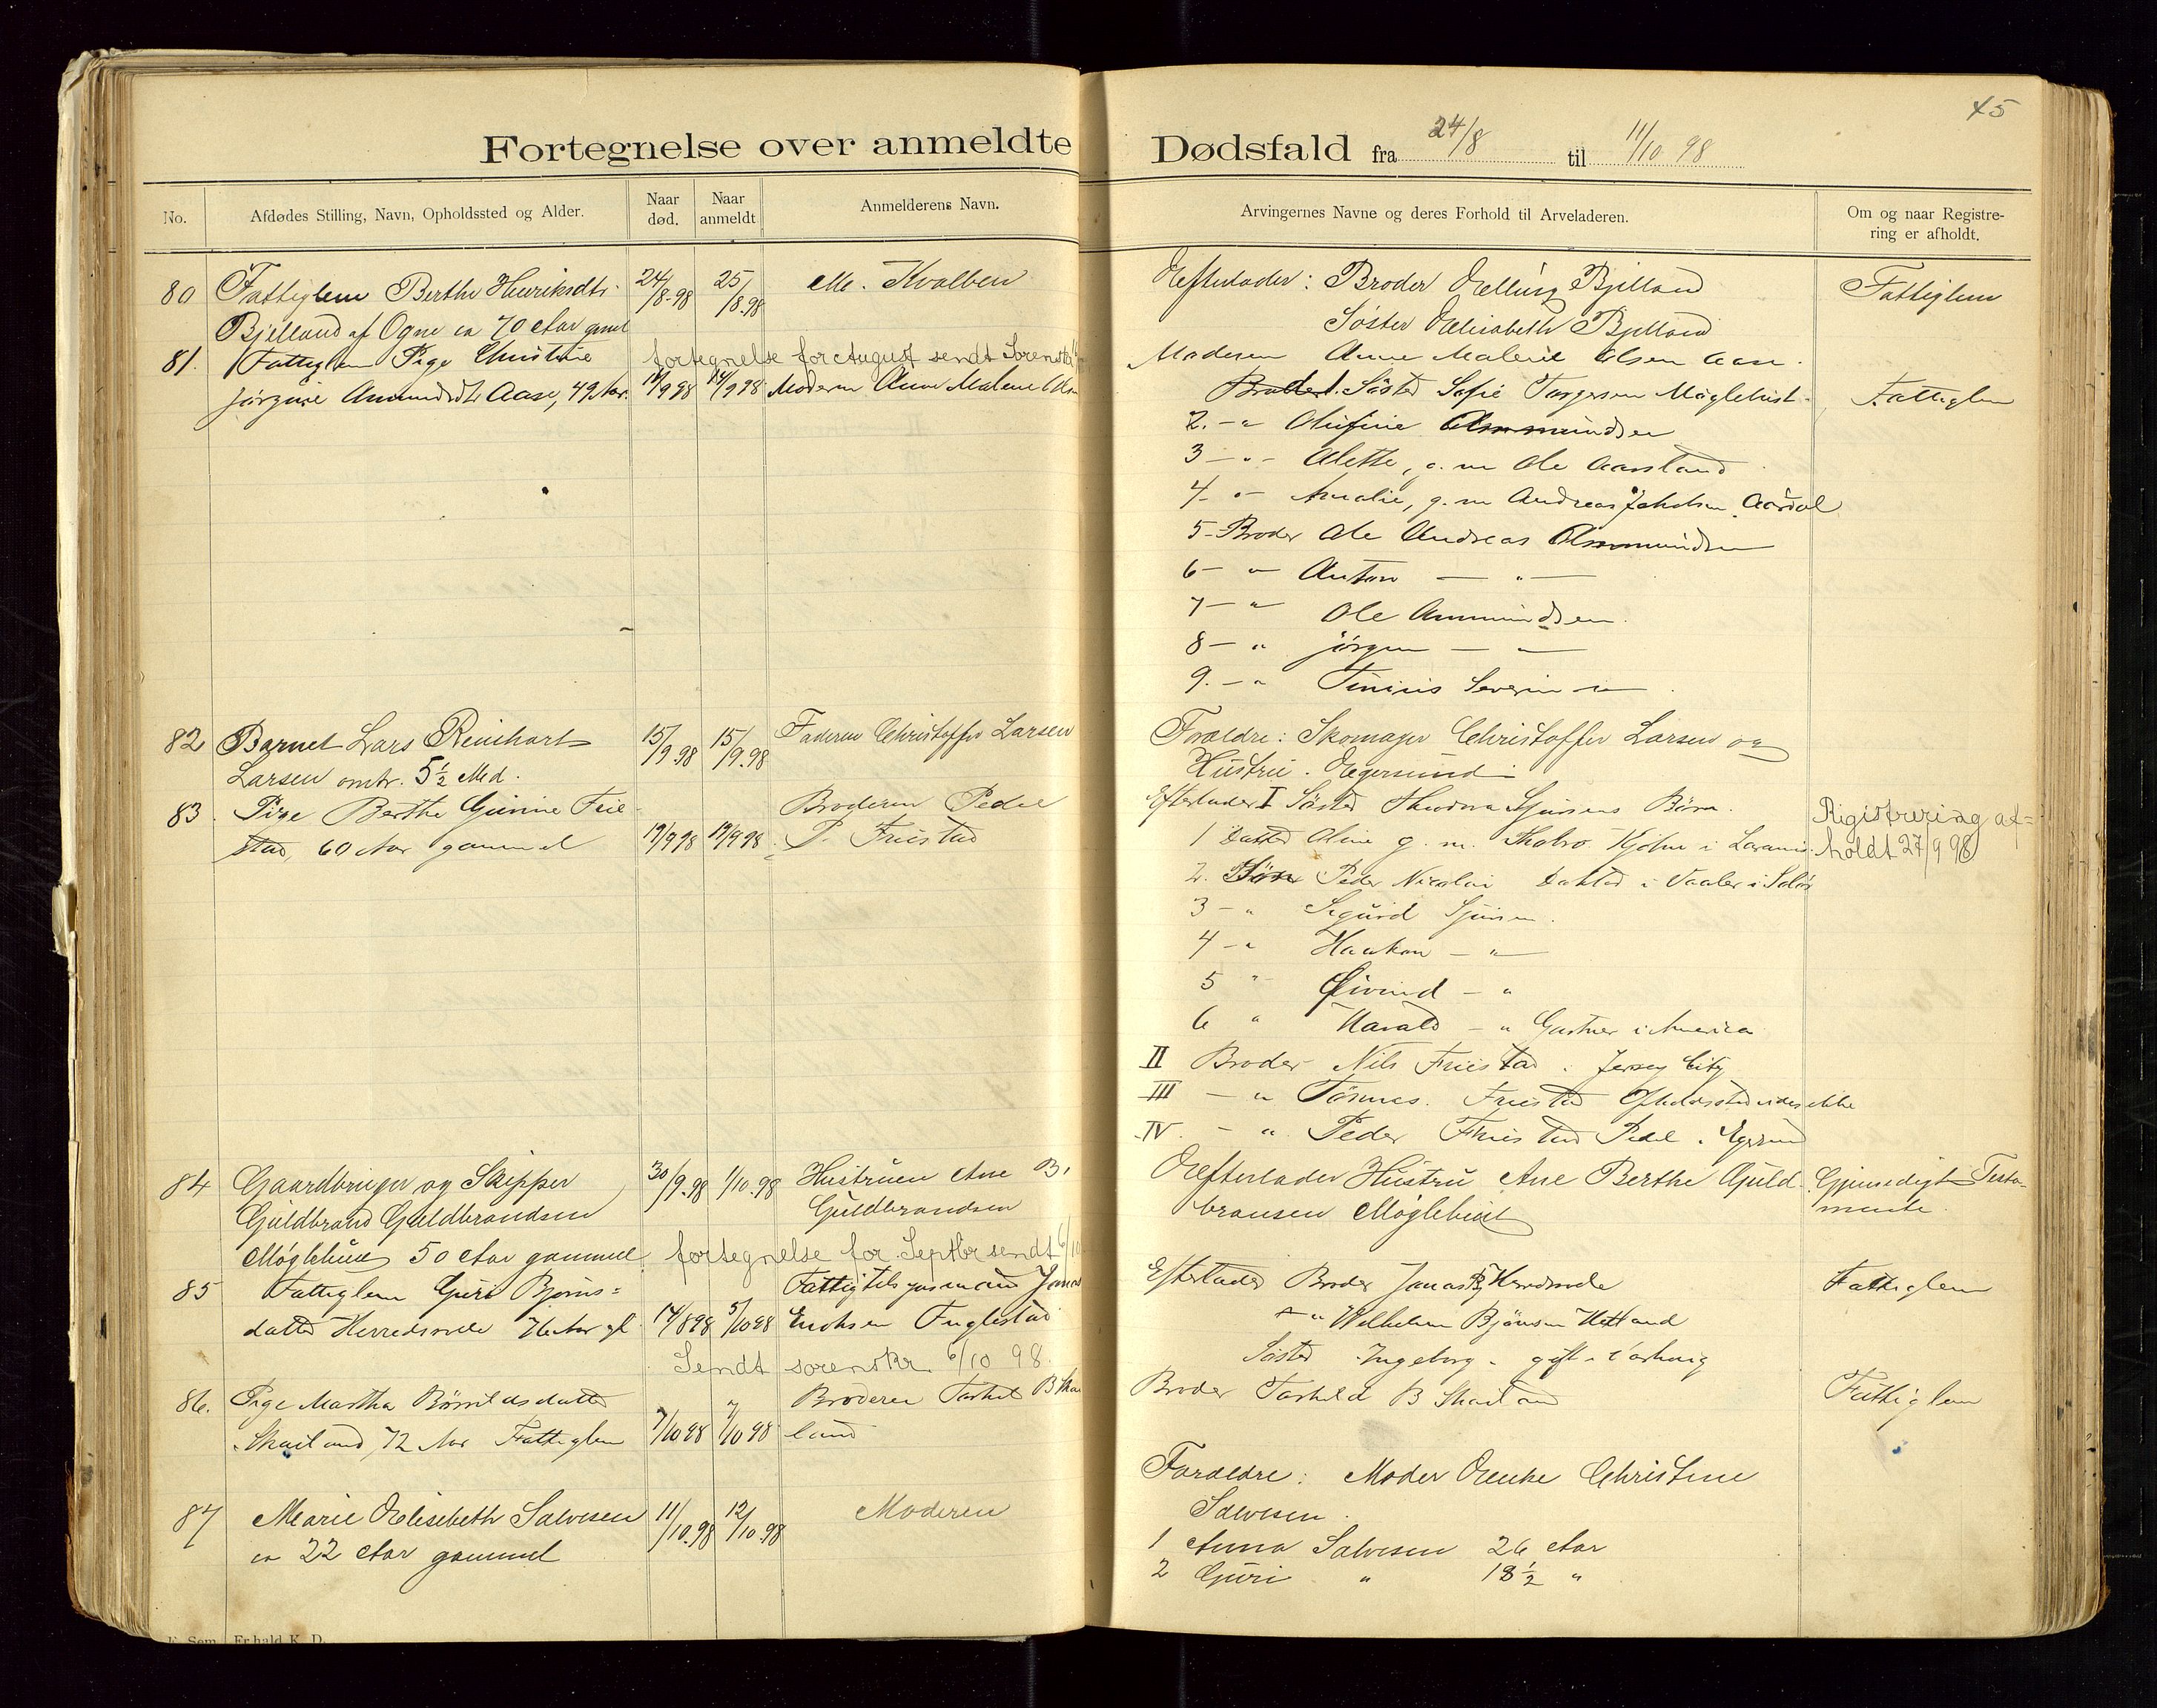 45
Fortegnelse over anmeldte Dødsfald fra 24/8 til 11/10 98
No. Afdødes Stilling, Navn, Opholdssted og Alder. Naar død. Naar anmeldt Anmelderens Navn. Arvingernes Navne og deres Forhold til Arveladeren. Om og naar Registrering er afholdt.
80 Fattiglem Berthe Henriksdtr. 24/8-98 25/8.98 M. Kvalben
Bjelland af Ogne ca 70 Aar gmel
Efterlader: Broder Elling Bjelland Fattiglem
Söster Elisabeth Bjelland
81. Fattiglem Pige Christine fortegnelse for August sendt Sorenskr
Jörgine Ammundsdtr Aase, 49 Aar. 14/9 98 Moderen Anne Malene Olsen
Moderen Anne Malene Olsen Aase.
1. Söster Sofie Torgersen Möglehust. Fattiglem
2. -"- Olufine Ammundsen
3 -"- Alette, g. m Ole Aarstand
4. -"- Amalie, g. m Andreas Jakobsen Aardal
5- Broder Ole Andreas Ammundsen
6 - " Anton - " -
7 - " Ole Ammundsen.
8 - " Jörgen - " -
9. - " Tinius Severin - " -
82 Barnet Lars Reinhart 15/9 98 15/9.98 Faderen Christoffer Larsen
Larsen omtr. 5½ Md.
Foraldre: Skomager Christoffer Larsen og
Hustru. Egersund
83. Pige Berthe Gurine Frie- Broderen Pedel
stad, 60 Aar gammel 19/9 98 19/9 98 P. Friestad
Efterlader I Söster Theodora Sjursens Börn. Rigistrering af=
1 Datter Oline g. m. Kjölner i holdt 27/9 98
2. Sön Peder Nicolai i Vaaler i Solör
3 - " Sigurd Sjursen.
4 - " Haakon - " -
5 " Øivind - "
6 " Harald - " Gartner i America
II Broder Nils Friestad i Jersey City
III - " Tönnes. Friestad Opholdssted vides ikke
IV. - " Peder Friestad Pedel i Egersund
84 Gaardbruger og Skipper 30/9.98 1/10.98 Hustruen Ane B.
Guldbrand Guldbrandsen Guldbrandsen
Møglehuus 50 Aar gammel. fortegnelse for Septbr sendt 6/10
Efterlader Hustru Ane Berthe Guld- Gjensidigt Testa-
bransen Møglehuus mente.
85 Fattiglem Guri Bjørns= Fattigtilsynsmand Jonas
datter Herredsvele Aar gl. 14/8 98 5/10 98 Erichsen Fuglestad
Sendt sorenskr. 6/10 98.
Efterlader Broder Jonas Bj Herredsvele Fattiglem
- " Wilhelm Bjönsen Hetland
Söster Ingeborg gift i
86. Pige Martha datter Broderen Torkel B Skai
Skailand, 72 Aar Fattiglem 7/10 98 7/10 98 land
Broder Torkild B Skailand Fattiglem
87 Marie Elisebeth Salvesen 11/10.98 12/10.98 Moderen
ca 22 Aar gammel
Foraldre: Moder Enke Christine
Salvesen.
1 Anna Salvesen 26 Aar
2 Guri " 18½ "
E. Sem, Fr.hald K. D.